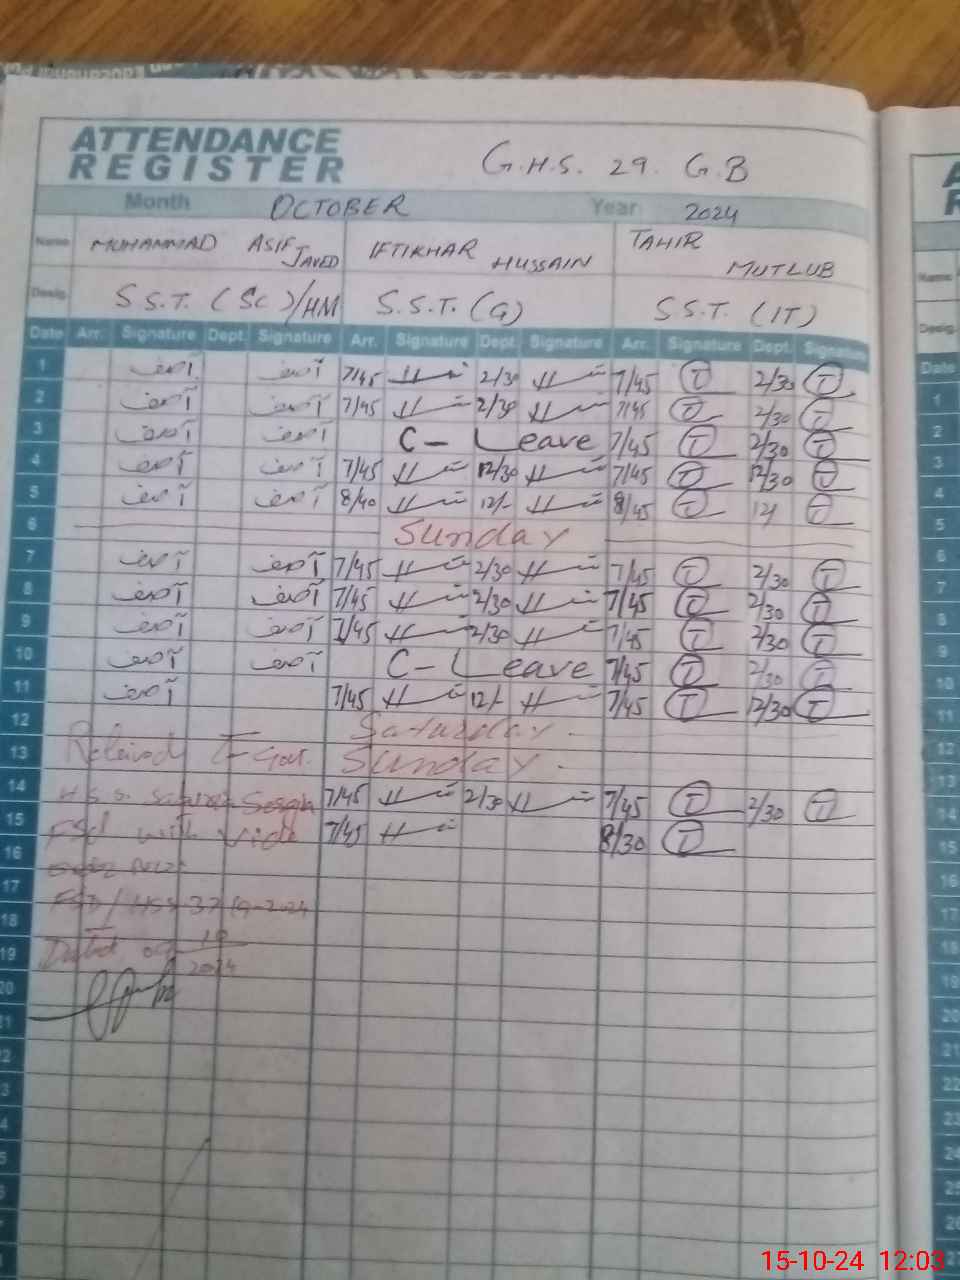 ATTENDANCE
REGISTER
G.H.S. 29. G.B
Month OCTOBER Year 2024
Name MUHAMMAD ASIF JAVED IFTIKHAR HUSSAIN TAHIR MUTLUB
Desig. S.S.T. (SC)/HM S.S.T. (G) S.S.T (IT)
Date Arr. Signature Dept. Signature Arr. Signature Dept. Signature Arr. Signature Dept. Signature
1 آصف آصف 7/45 2/30 7/45 T 2/30 T
2 آصف آصف 7/45 2/30 7/45 T 2/30 T
3 آصف آصف C-Leave 7/45 T 2/30 T
4 آصف آصف 7/45 12/30 7/45 T 12/30 T
5 آصف آصف 8/40 12/- 8/45 T 12/ T
6 Sunday
7 آصف آصف 7/45 2/30 7/45 T 2/30 T
8 آصف آصف 7/45 2/30 7/45 T 2/30 T
9 آصف آصف 7/45 2/30 7/45 T 2/30 T
10 آصف آصف C-Leave 7/45 T 2/30 T
11 آصف 7/45 12/- 7/45 T 12/30 T
12 Saturday
13 Sunday
14 H.S.S. 7/45 2/30 7/45 T 2/30 T
15 FSD with vide 7/45 8/30 T
16
17 FSD/HSS
18
19 Dated 09 10
20 2024
15-10-24 12:03